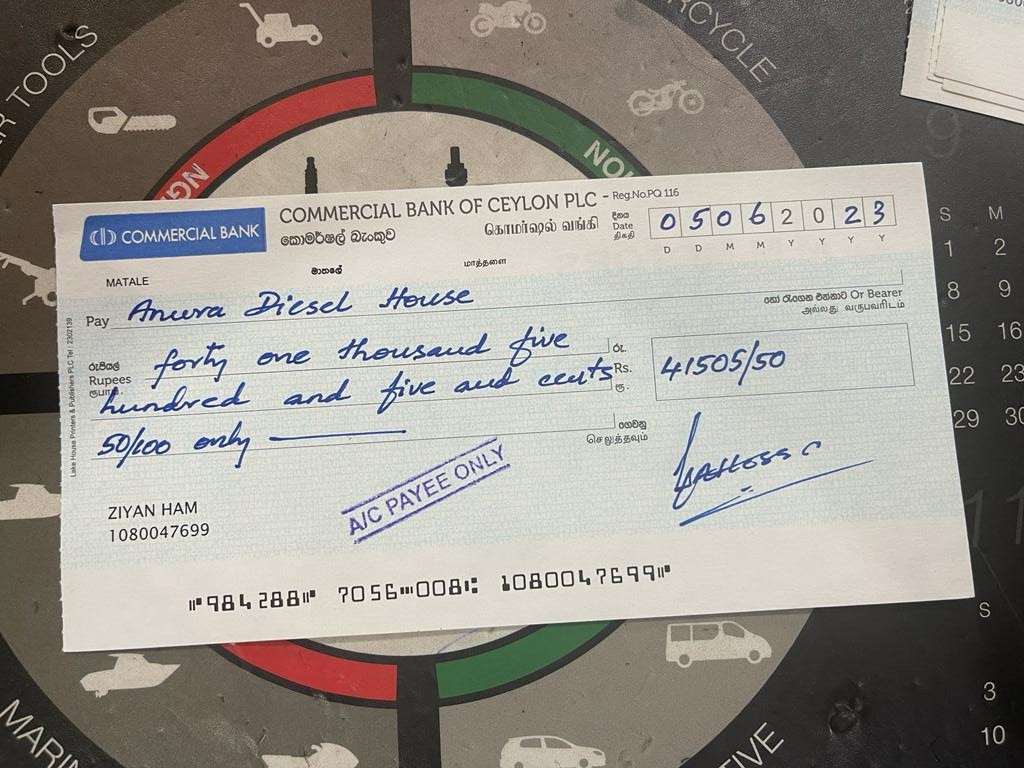 R TOOLS
RCYCLE
NG
NO
COMMERCIAL BANK
COMMERCIAL BANK OF CEYLON PLC - Reg.No.PQ 116
කොමර්ෂල් බැංකුව கொமர்ஷல் வங்கி
දිනය
Date
திகதி
0 5 0 6 2 0 2 3
D D M M Y Y Y Y
MATALE මාතලේ மாத்தளை
Pay Anura Diesel House
හෝ රැගෙන එන්නාට Or Bearer
அல்லது வருபவரிடம்
රුපියල්
Rupees
ரூபா
forty one thousand five
hundred and five and cents
50/100 only
රු.
Rs.
ரூ.
41505/50
ගෙවනු
செலுத்தவும்
A/C PAYEE ONLY
ZIYAN HAM
1080047699
⑈984288⑈ 7056⑉008⑆ 1080047699⑈
Lake House Printers & Publishers PLC Tel : 2302139
S M
1 2
8 9
15 16
22 23
29 30
9
11
S
3
10
MARIN
TIVE